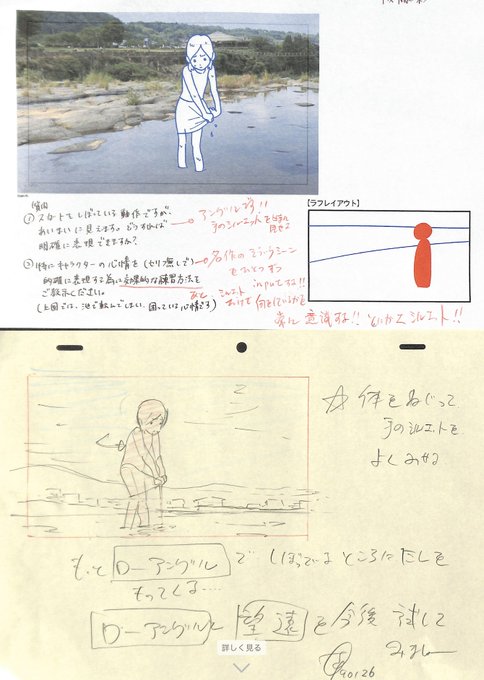 質問
① スカートをしぼっている動作ですが、
あいまいに見えます。どうすれば
明確に表現できますか?
アングルです!!
手のシルエットを
見せる
② 特にキャラクターの心情を(切り無しで)
的確に表現する為に効果的な練習方法を
ご教示ください。
(上図では、池で転んでしまい、困っている心情です)
名作の
inputする!!
シルエット
だけで何をしているかを
常に意識する!! とにかくシルエット!!
【ラフレイアウト】
☆体をねじって
手のシルエットを
よくみせる
もっとローアングルで しぼっているところに
もってくる....
ローアングルと望遠を今後試して
みましょー
詳しく見る